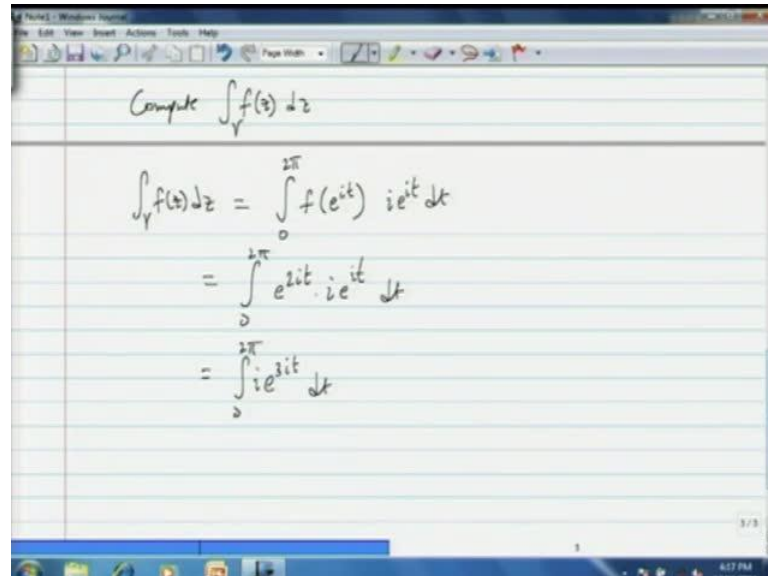 Note1 - Windows Journal
File Edit View Insert Actions Tools Help
Page Width
Compute ∫_γ f(z) dz
∫_γ f(z) dz = ∫_0^{2π} f(e^{it}) ie^{it} dt
= ∫_0^{2π} e^{2it} . ie^{it} dt
= ∫_0^{2π} ie^{3it} dt
3/3
3
4:17 PM